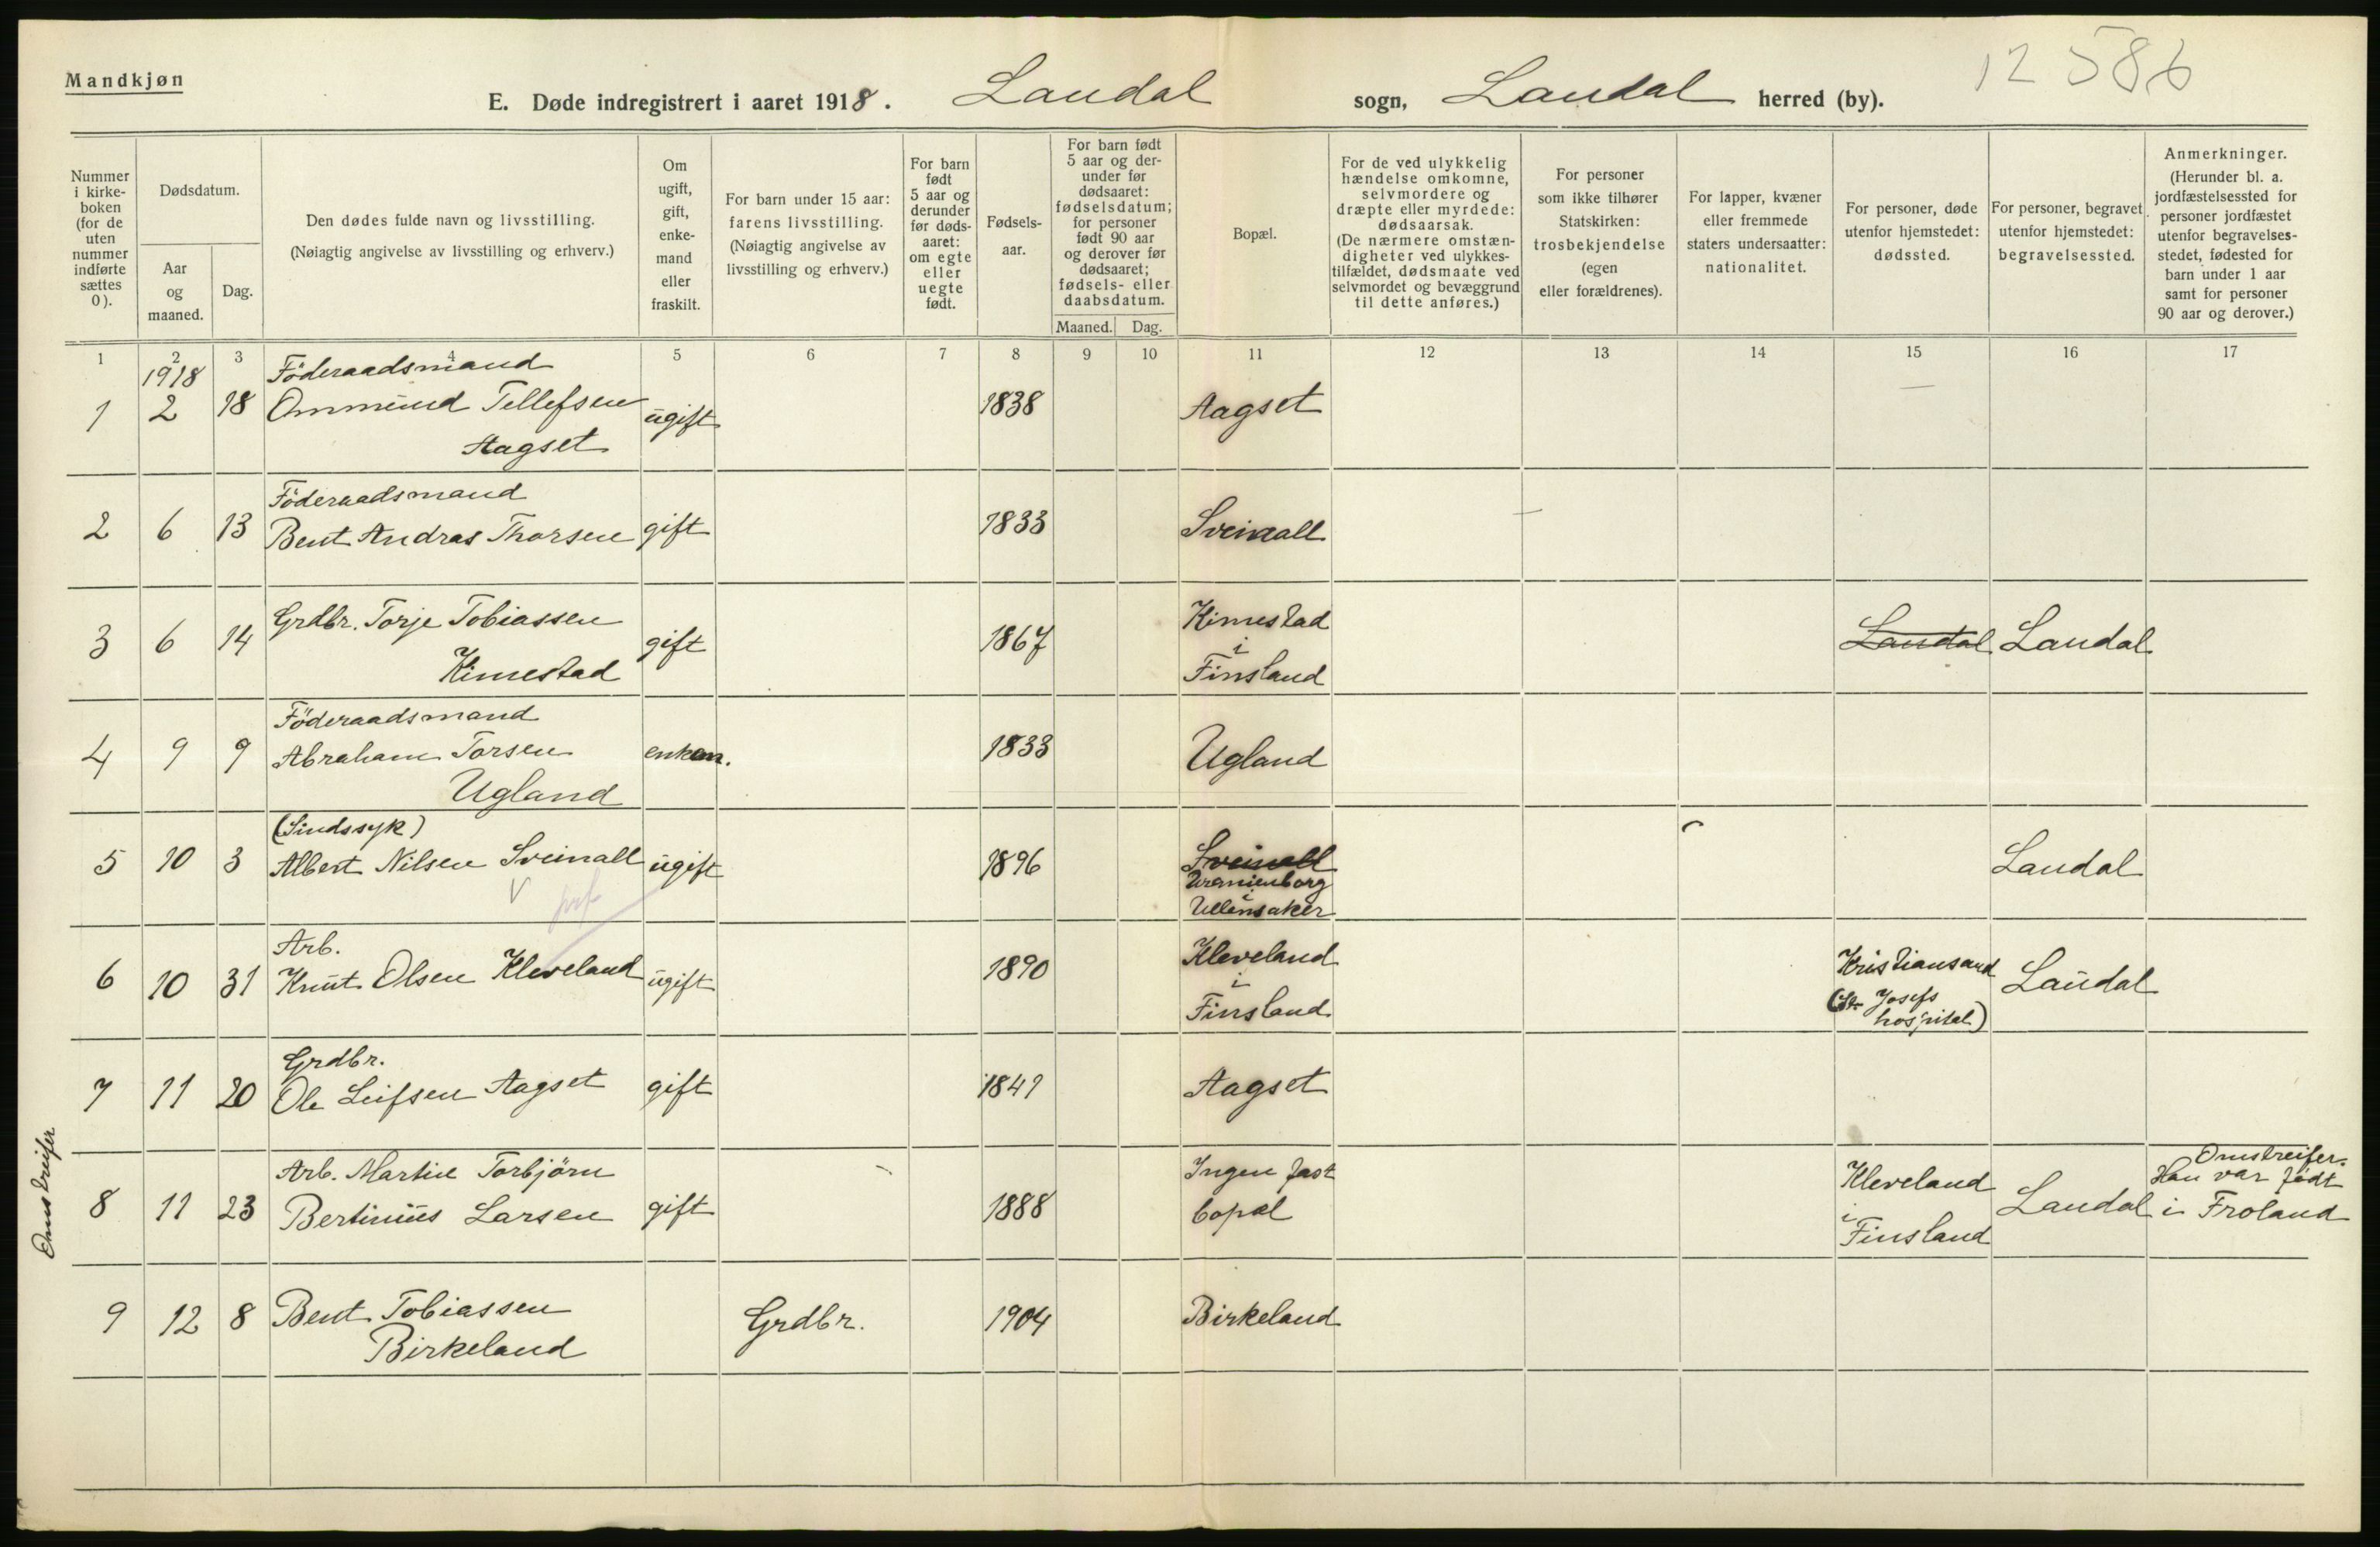 Mandkjøn
12 586
E. Døde indregistrert i aaret 1918. Laudal sogn, Laudal herred (by).
Nummer i kirke-boken (for de uten nummer indførte sættes 0).
Dødsdatum.
Aar og maaned.
Dag.
Den dødes fulde navn og livsstilling.
(Nøiagtig angivelse av livsstilling og erhverv.)
Om ugift, gift, enke-mand eller fraskilt.
For barn under 15 aar: farens livsstilling. (Nøiagtig angivelse av livsstilling og erhverv.)
For barn født 5 aar og derunder før døds-aaret: om egte eller uegte født.
Fødsels-aar.
For barn født 5 aar og der-under før dødsaaret: fødselsdatum; for personer født 90 aar og derover før dødsaaret; fødsels- eller daabsdatum.
Maaned. Dag.
Bopæl.
For de ved ulykkelig hændelse omkomne, selvmordere og dræpte eller myrdede: dødsaarsak. (De nærmere omstæn-digheter ved ulykkes-tilfældet, dødsmaate ved selvmordet og bevæggrund til dette anføres.)
For personer som ikke tilhører Statskirken: trosbekjendelse (egen eller forældrenes).
For lapper, kvæner eller fremmede staters undersaatter: nationalitet.
For personer, døde utenfor hjemstedet: dødssted.
For personer, begravet utenfor hjemstedet: begravelsessted.
Anmerkninger. (Herunder bl. a. jordfæstelsessted for personer jordfæstet utenfor begravelses-stedet, fødested for barn under 1 aar samt for personer 90 aar og derover.)
1 2 3 4 5 6 7 8 9 10 11 12 13 14 15 16 17
1918 Föderaadsmand
1 2 18 Ommund Tellefsen ugift 1838 Aagset
Aagset
Föderaadsmand
2 6 13 Bent Andras Thorsen gift 1833 Sveinall
3 6 14 Grdbr. Torje Tobiassen gift 1867 Kimestad Laudal Laudal
i
Kimestad Finsland
Föderaadsmand
4 9 9 Abraham Torsen enkem. 1833 Ugland
Ugland
(Sindssyk)
5 10 3 Albert Nilsen Sveinall ugift 1896 Sveinall Laudal
Uranienborg
i
Ullensaker
Arb.
6 10 31 Knut Olsen Kleveland ugift 1890 Kleveland Kristiansand Laudal
i (St. Josefs
Finsland hospital)
Grdbr.
7 11 20 Ole Leifsen Aagset gift 1841 Aagset
Omstreifer
Arb. Martin Torbjörn Ingen fast Kleveland Omstreifer.
8 11 23 Bertinius Larsen gift 1888 bopæl i Laudal Han var født
Finsland i Froland
9 12 8 Bent Tobiassen Grdbr. 1904 Birkeland
Birkeland